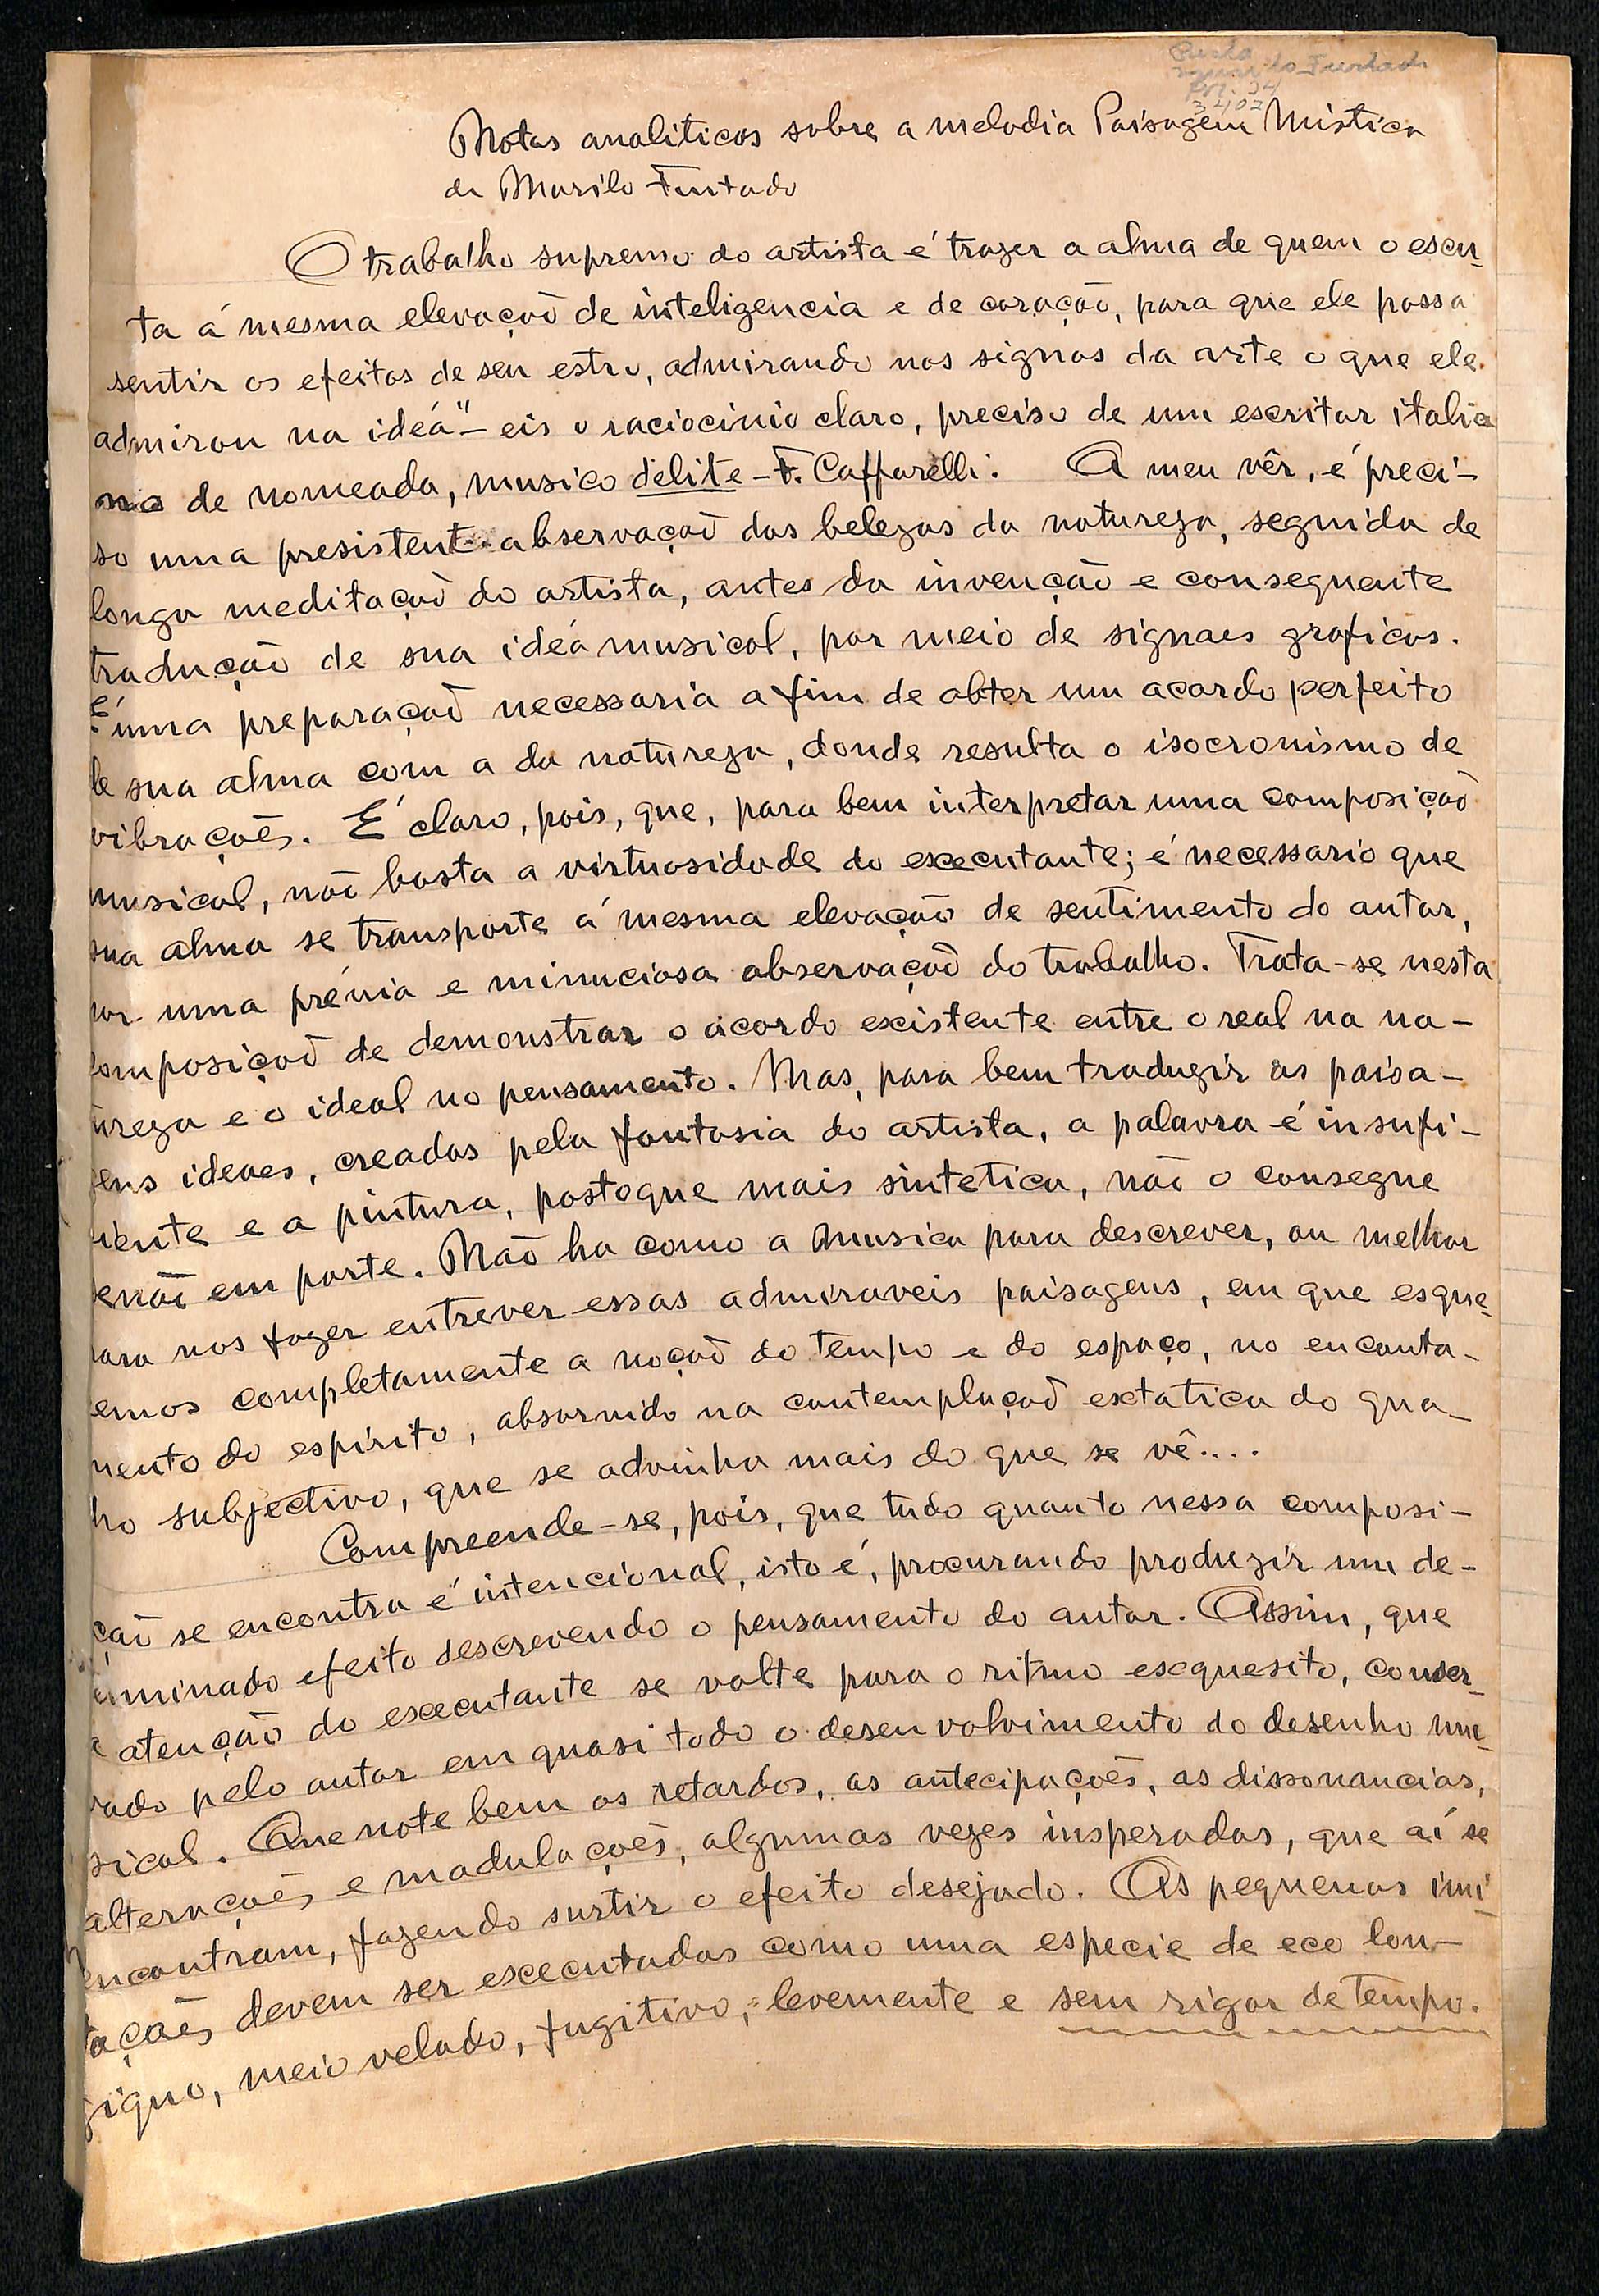 Murilo Furtado
Notas analiticas sobre a melodia Paisagem Mistica
de Murilo Furtado
O trabalho supremo do artista é trazer a alma de quem o escu-
ta á mesma elevação de inteligencia e de coração, para que ele possa
sentir os efeitos de seu estro, admirando nos signos da arte o que ele
admirou na idéa" – eis o raciocinio claro, preciso de um escritor italia
no de nomeada, musico delite – F. Caffarelli. A meu vêr, é preci-
so uma presistente observação das belezas da natureza, seguida de
longa meditação do artista, antes da invenção e consequente
tradução de sua idéa musical, por meio de signaes graficos.
É uma preparação necessaria a fim de obter um acordo perfeito
de sua alma com a da natureza, donde resulta o isocronismo de
vibrações. É claro, pois, que, para bem interpretar uma composição
musical, não basta a virtuosidade do executante; é necessario que
sua alma se transporte á mesma elevação de sentimento do autor,
por uma prévia e minuciosa observação do trabalho. Trata-se nesta
composição de demonstrar o acordo existente entre o real na na-
tureza e o ideal no pensamento. Mas, para bem traduzir as paisa-
gens ideaes, creadas pela fantasia do artista, a palavra é insufi-
ciente e a pintura, postoque mais sintetica, não o consegue
senão em parte. Não ha como a musica para descrever, ou melhor
para nos fazer entrever essas admiraveis paisagens, em que esque-
cemos completamente a noção do tempo e do espaço, no encanta-
mento do espirito, absorvido na contemplação extatica do qua-
dro subjectivo, que se advinha mais do que se vê....
Compreende-se, pois, que tudo quanto nessa composi-
ção se encontra é intencional, isto é, procurando produzir um de-
terminado efeito descrevendo o pensamento do autor. Assim, que
a atenção do executante se volte para o ritmo exquesito, conser-
vado pelo autor em quasi todo o desenvolvimento do desenho mu-
sical. Que note bem os retardos, as antecipações, as dissonancias,
alterações e modulações, algumas vezes insperadas, que aí se
encontram, fazendo surtir o efeito desejado. As pequenas imi-
tações devem ser executadas como uma especie de eco lon-
giquo, meio velado, fugitivo, levemente e sem rigor de tempo.